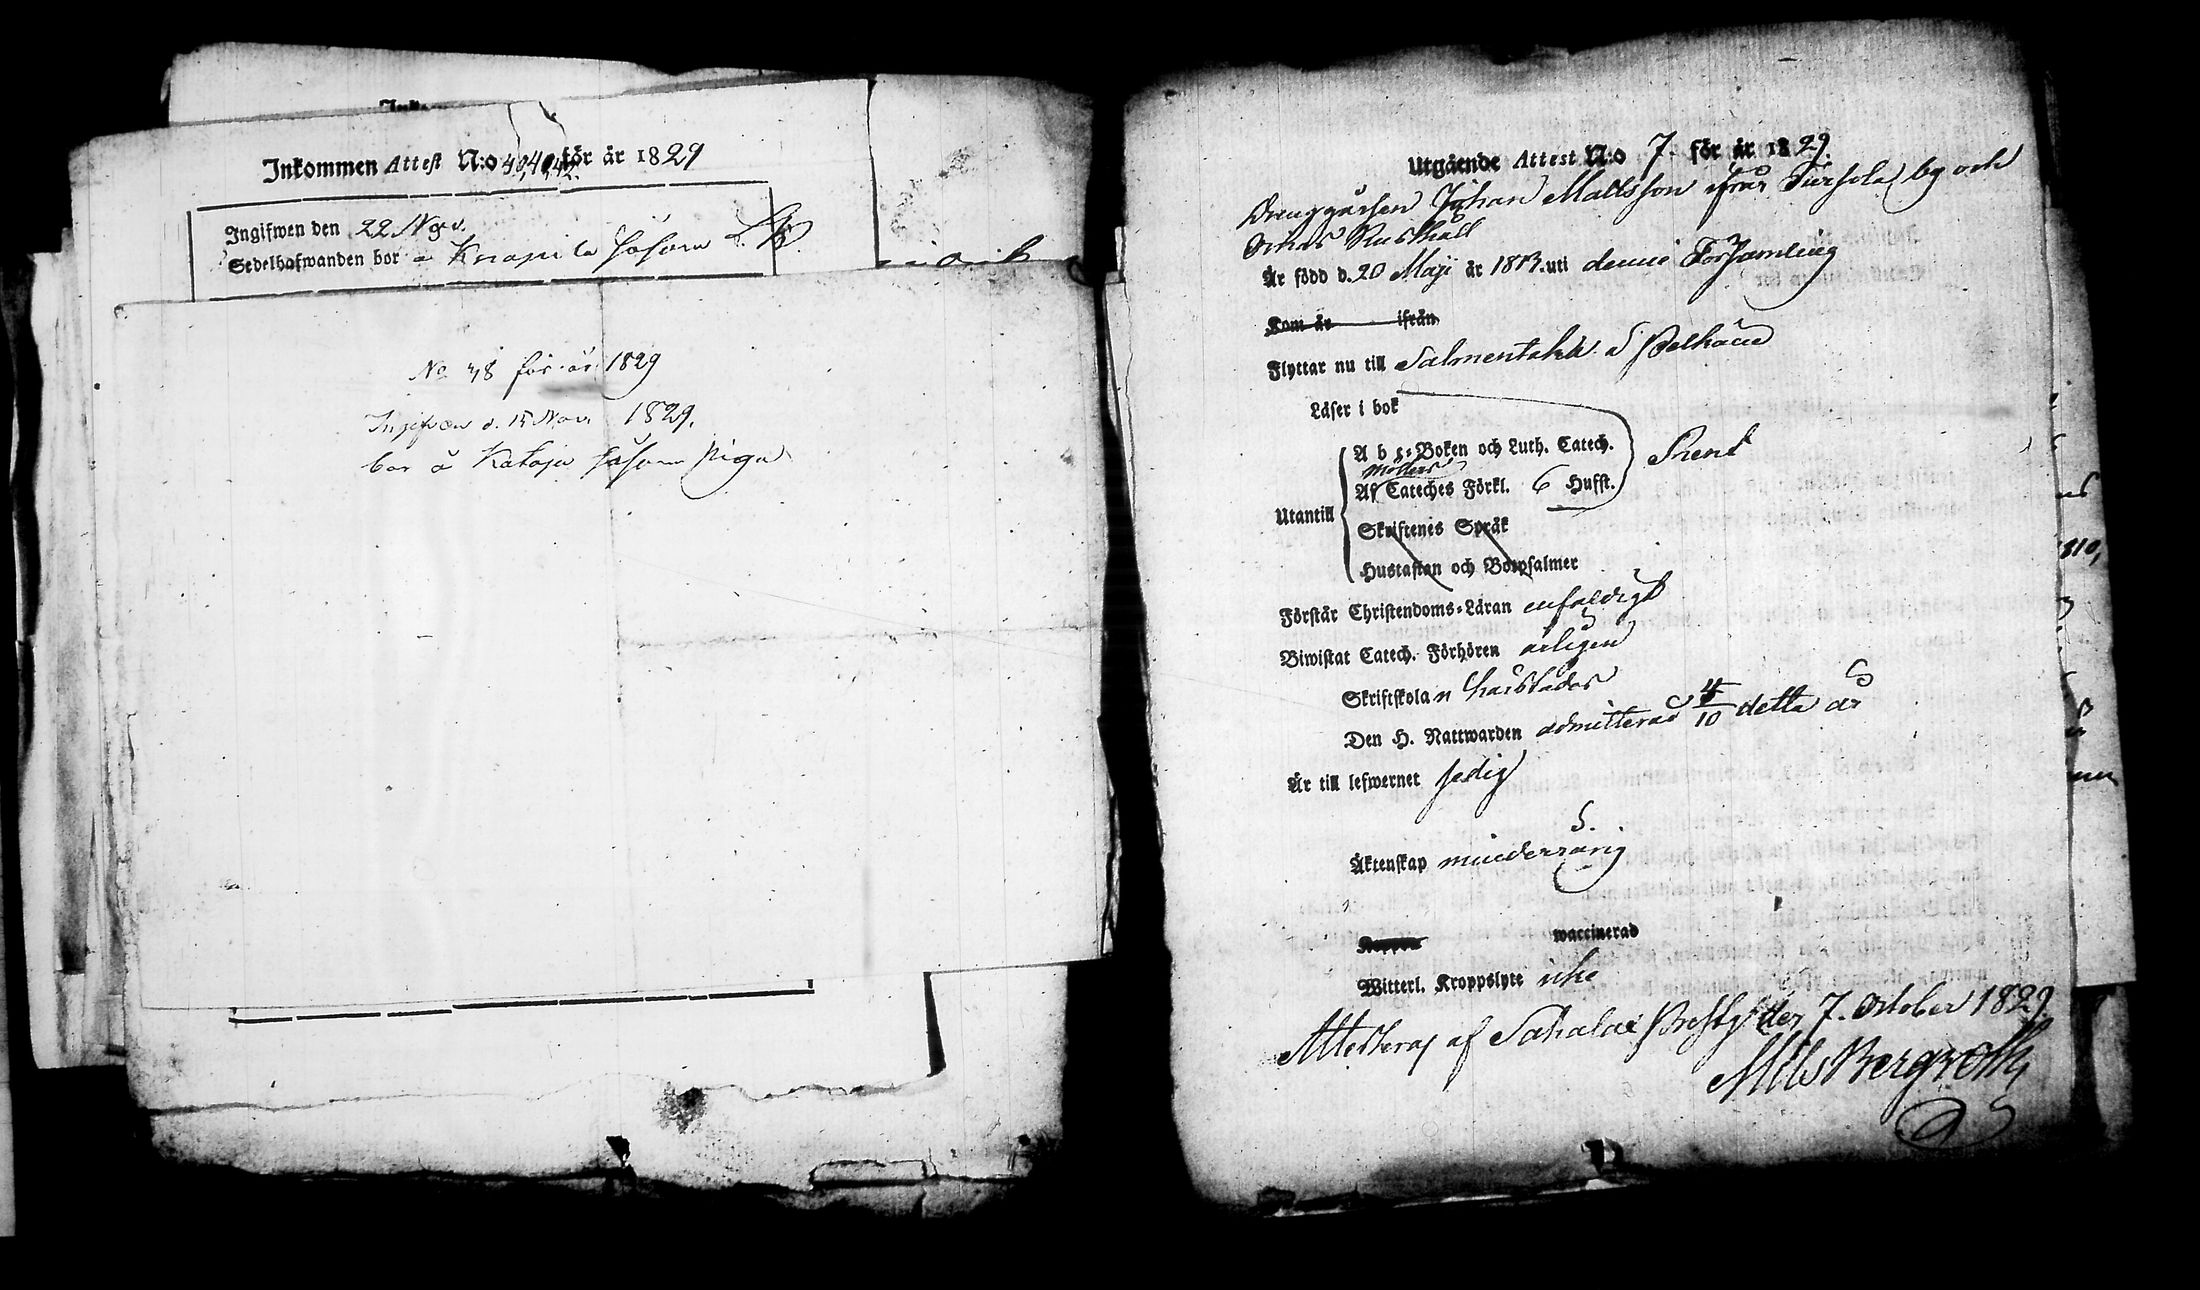 Inkommen Attest N:o 40,41,42. för år 1829
Ingifwen den 22 Nov.
Sedelhafwanden bor å Knapila såsom
No 38 för år 1829
Ingifven d. 15 Nov. 1829.
bor å Kataja såsom piga
Utgående Attest N:o 7. för år 1829.
Drenggåssen Johan Mattsson ifrån Tursola by och
Ornas Rusthåll
Är född d. 20 Maji år 1813. uti denne Församling
Kom år ifrån
Flyttar nu till Salmentaka i Pelkäne
Läser i bok
A b c-Boken och Luth. Catech.
Möllers
Af Cateches Förkl. 6 Hufst.
Rent
Utantill
Skriftenes Språk
Hustaflan och Botpsalmer
Förstår Christendoms-Läran enfaldigt
Biwistat Catech. Förhören årligen
Skriftskolan häistades
Den H. Nattwarden admitterad 4/10 detta år
Är till lefwernet sedig
Äktenskap minderårig
Koppor waccinerad
Witterl. Kroppslyte icke
Attesteras af Sahalax Prestg. den 7. October 1829.
Nils Bergroth